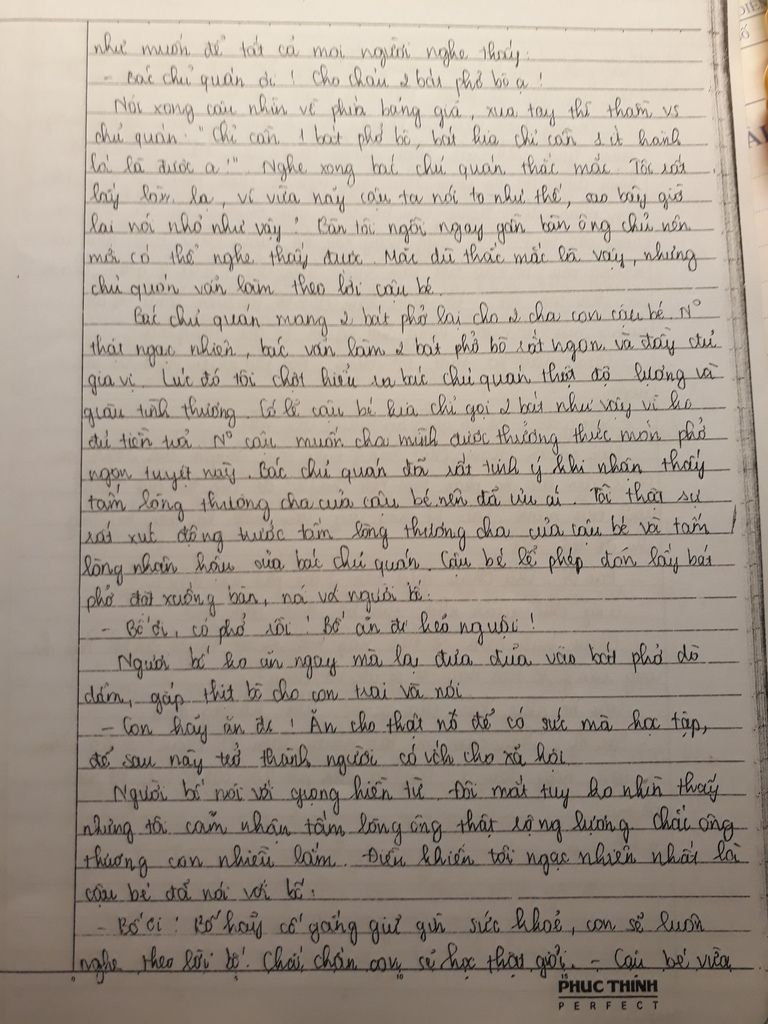 như muốn để tất cả mọi người nghe thấy:
- Bác chủ quán ơi ! Cho cháu 2 bát phở bò ạ !
Nói xong cậu nhìn về phía bảng giá, xua tay thì thầm vs
chủ quán: "Chỉ cần 1 bát phở bò, bát kia chỉ cần 1 ít hành
lá là được ạ !". Nghe xong bác chủ quán thắc mắc. Tôi rất
lấy làm lạ, vì vừa nãy cậu ta nói to như thế, sao bây giờ
lại nói nhỏ như vậy ? Bàn tôi ngồi ngay gần bàn ông chủ nên
mới có thể nghe thấy được. Mặc dù thắc mắc là vậy, nhưng
chủ quán vẫn làm theo lời cậu bé.
Bác chủ quán mang 2 bát phở lại cho 2 cha con cậu bé. Nº
thật ngạc nhiên, bác vẫn làm 2 bát phở bò rất ngon và đầy đủ
gia vị. Lúc đó tôi chợt hiểu ra bác chủ quán thật độ lượng và
giàu tình thương. Có lẽ cậu bé kia chỉ gọi 2 bát như vậy vì ko
đủ tiền trả. Nº cậu muốn cha mình được thưởng thức món phở
ngon tuyệt này. Bác chủ quán đã rất tinh ý khi nhận thấy
tấm lòng thương cha của cậu bé nên đã ưu ái. Tôi thật sự
rất xúc động trước tấm lòng thương cha của cậu bé và tấm
lòng nhân hậu của bác chủ quán. Cậu bé lễ phép đón lấy bát
phở đặt xuống bàn, nói với người bố:
- Bố ơi, có phở rồi ! Bố ăn đi kẻo nguội !
Người bố ko ăn ngay mà lại đưa đũa vào bát phở dò
dẫm, gắp thịt bò cho con trai và nói
- Con hãy ăn đi ! Ăn cho thật no để có sức mà học tập,
để sau này trở thành người có ích cho xã hội
Người bố nói với giọng hiền từ. Đôi mắt tuy ko nhìn thấy
nhưng tôi cảm nhận tấm lòng ông thật rộng lượng. Chắc ông
thương con nhiều lắm. Điều khiến tôi ngạc nhiên nhất là
cậu bé đã nói với bố:
- Bố ơi ! Bố hãy cố gắng giữ gìn sức khoẻ, con sẽ luôn
nghe theo lời bố. Chắc chắn con sẽ học thật giỏi. - Cậu bé vừa
PHUC THINH
PERFECT